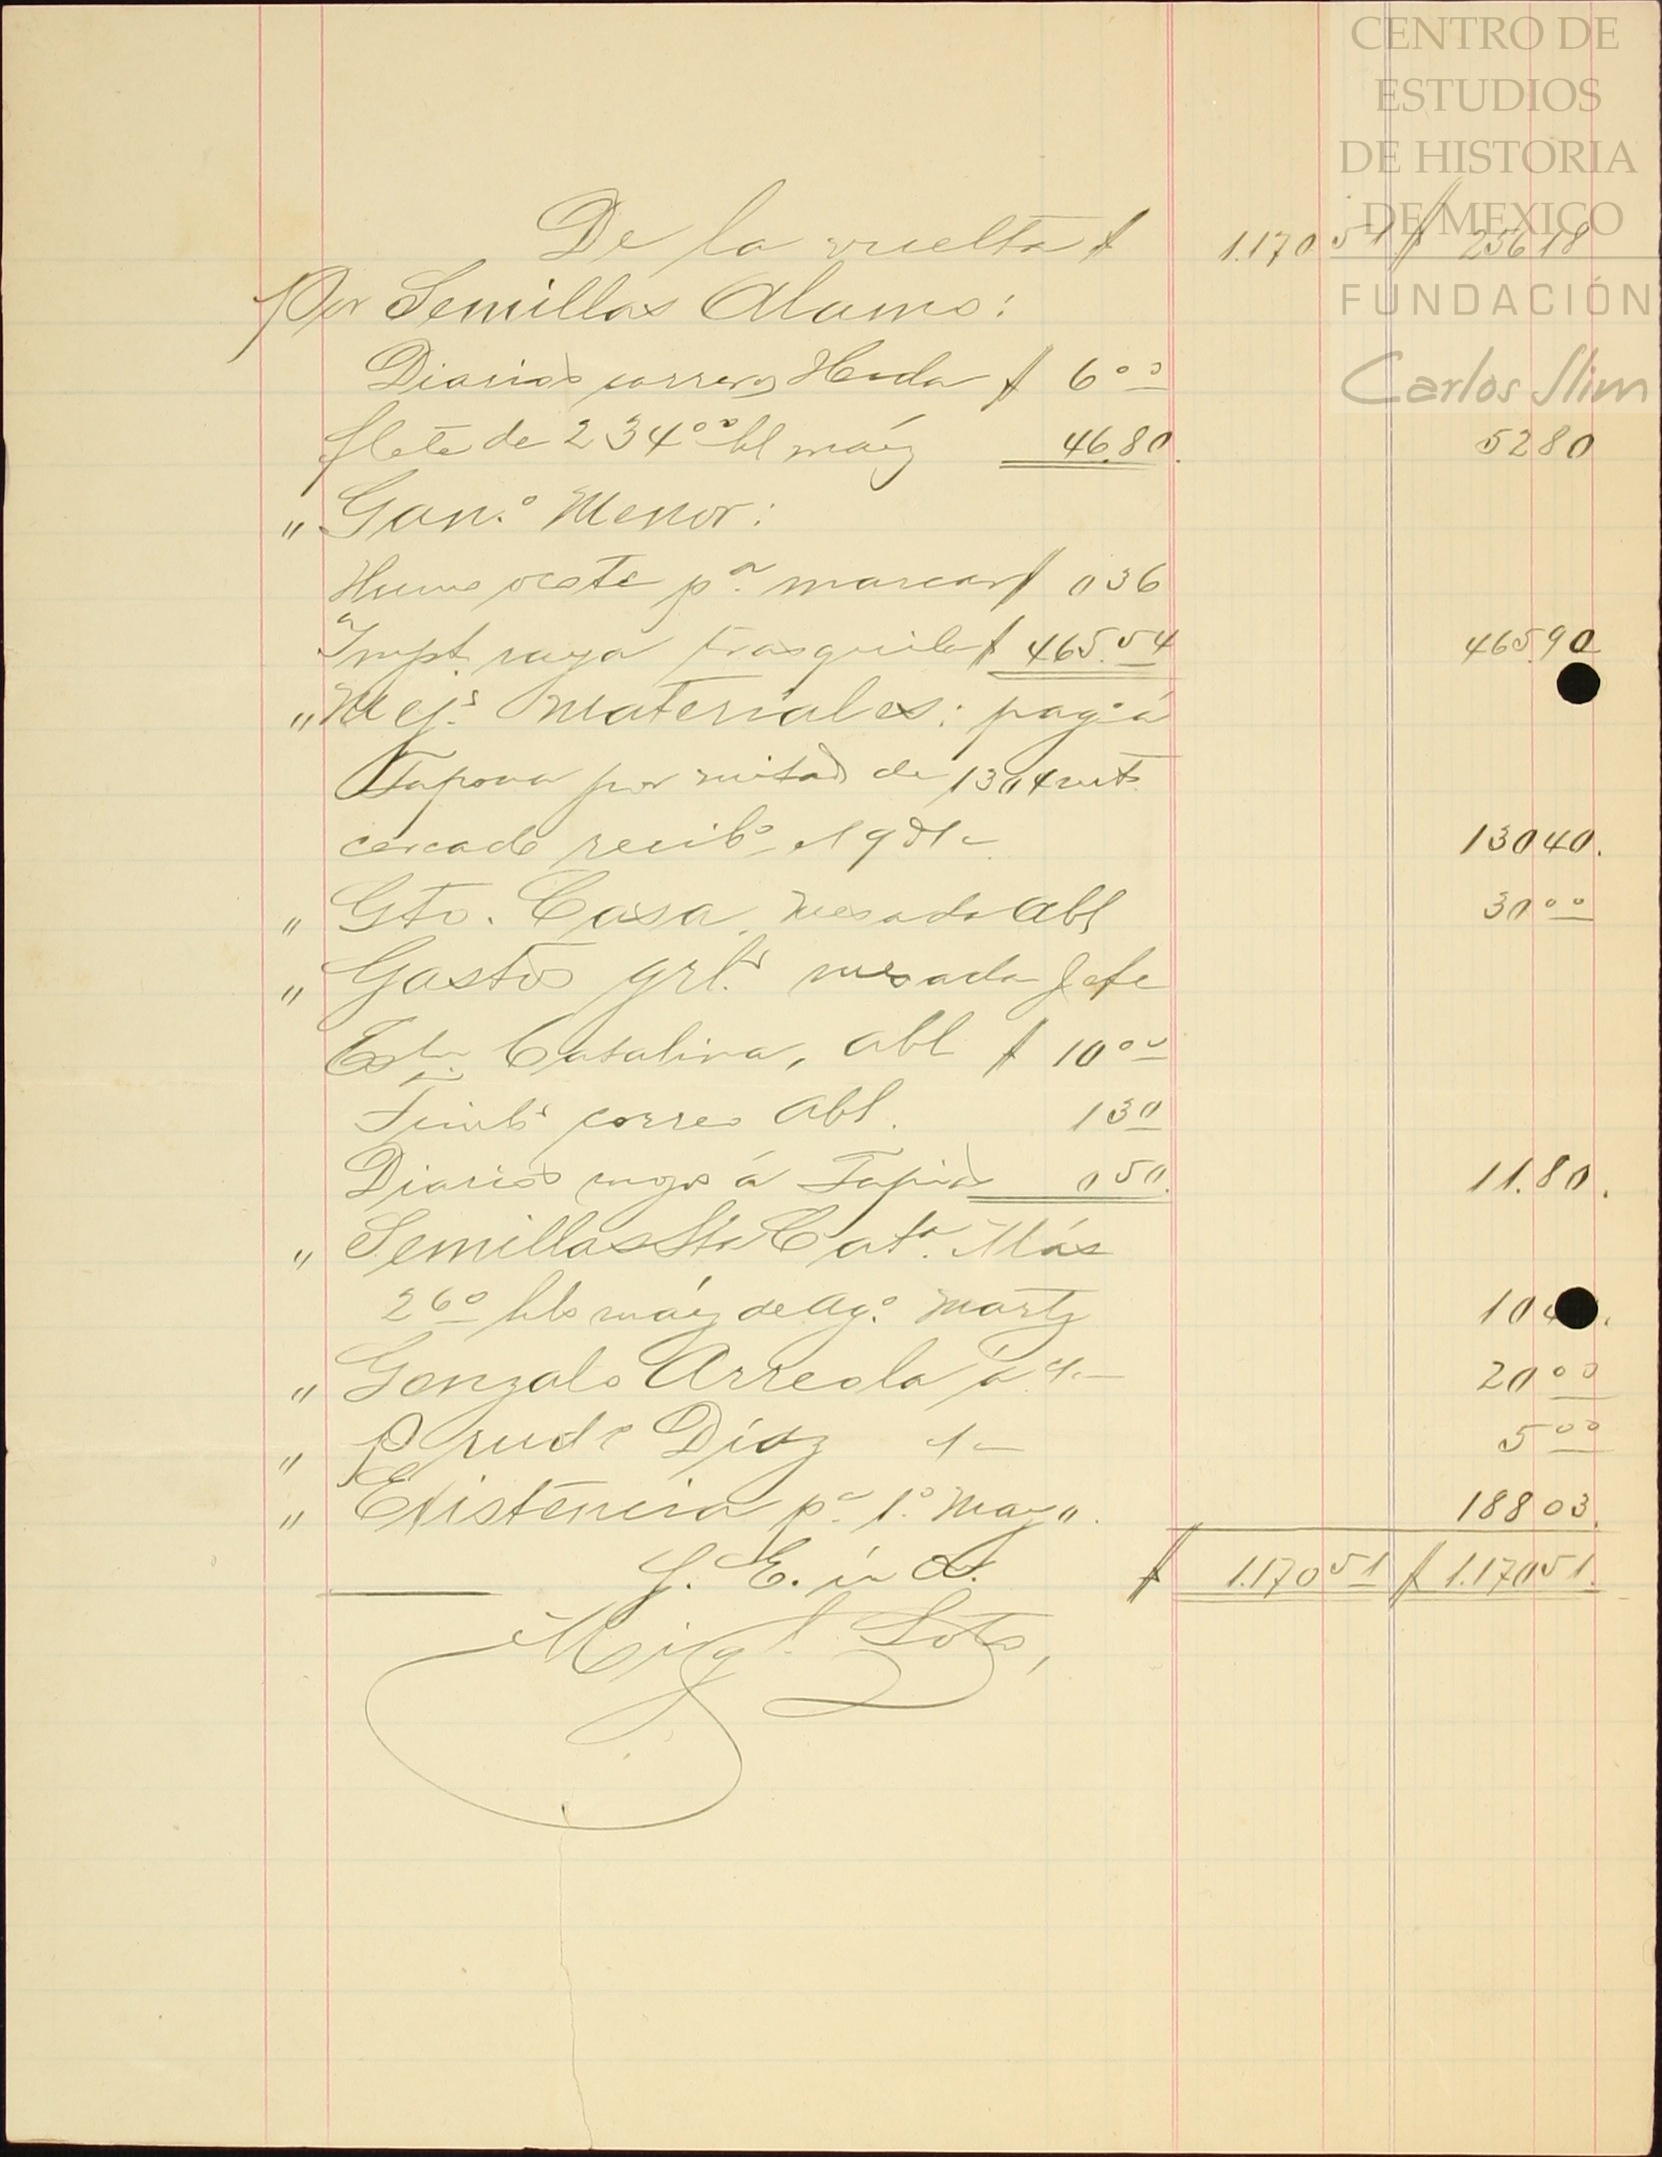 CENTRO DE
ESTUDIOS
DE HISTORIA
DE MEXICO
FUNDACIÓN
Carlos Slim
De la vuelta $ 1.170 51 $ 256 18
Por Semillas Alamo:
Diarios carreros Hcda $ 6 00
flete de 234 00 hl maíz 46.80. 52 80
" Gan.o Menor:
Humo ocote p.a marcar $ 0 36
Impt. raya trasquila $ 465.54 465.90
" Mej.s Materiales: pag.o á
Tapona por mitad de 1304 mts
cercado recibo el 9 01304 130 40.
" Gto. Casa, mesada Abl 30 00
" Gastos grl.s mesada Jefe
Estn. Catalina, Abl $ 10 00
Timbs correo Abl. 1 30
Diarios mozo á Tapias 0 50. 11.80.
" Semillas Sta Cat.a Más
26 0 hls maíz de Ag.o Martz 10 4
" Gonzalo Arreola á c/c 20 00
" Prude Díaz c/c 5 00
" Existencia p.a 1.o May". 188 03.
S. E. ú O. $ 1.170 51 $ 1.170 51.
Migl. Soto,